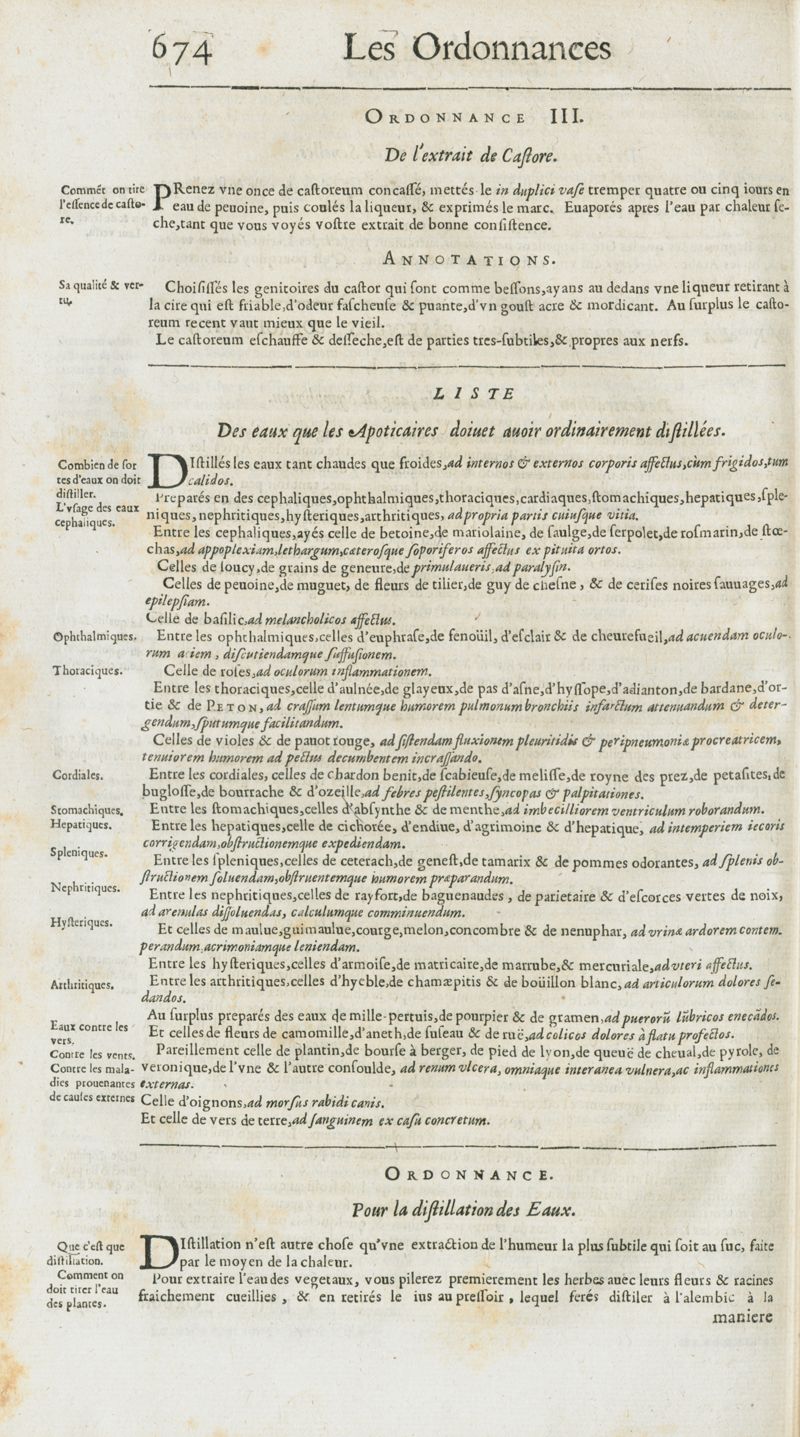 674 Les Ordonnances
ORDONNANCE III.
De l'extrait de Caſtore.
Commẽt on tire
l'eſſence de caſto-
re.
PRenez vne once de caſtoreum concaſſé, mettés le in duplici vaſe tremper quatre ou cinq iours en
eau de peuoine, puis coulés la liqueur, & exprimés le marc. Euaporés apres l'eau par chaleur ſe-
che,tant que vous voyés voſtre extrait de bonne conſiſtence.
ANNOTATIONS.
Sa qualité & ver-
tu.
Choiſiſſés les genitoires du caſtor qui ſont comme beſſons,ayans au dedans vne liqueur retirant à
la cire qui eſt friable,d'odeur faſcheuſe & puante,d'vn gouſt acre & mordicant. Au ſurplus le caſto-
reum recent vaut mieux que le vieil.
Le caſtoreum eſchauffe & deſſeche,eſt de parties tres-ſubtiles,&.propres aux nerfs.
LISTE
Des eaux que les Apoticaires doiuet auoir ordinairement diſtillées.
Combien de ſor
tes d'eaux on doit
diſtiller.
L'vſage des eaux
cephaliques.
DIſtillés les eaux tant chaudes que froides,ad internos & externos corporis affectus,cùm frigidos,tum
calidos.
Preparés en des cephaliques,ophthalmiques,thoraciques,cardiaques,ſtomachiques,hepatiques,ſple-
niques,nephritiques,hyſteriques,arthritiques, ad propria partis cuiuſque vitia.
Entre les cephaliques,ayés celle de betoine,de mariolaine, de ſaulge,de ſerpolet,de roſmarin,de ſtœ-
chas,ad appoplexiam,lethargum,cæteroſque ſoporiferos affectus ex pituita ortos.
Celles de ſoucy,de grains de geneure,de primulaueris,ad paralyſin.
Celles de peuoine,de muguet, de fleurs de tilier,de guy de cheſne , & de ceriſes noires ſauuages,ad
epilepſiam.
Celle de baſilic,ad melancholicos affectus.
Ophthalmiques.
Entre les ophthalmiques,celles d'euphraſe,de fenoüil, d'eſclair & de cheureſueil,ad acuendam oculo-
rum aciem , diſcutiendamque ſuffuſionem.
Thoraciques.
Celle de roſes,ad oculorum inflammationem.
Entre les thoraciques,celle d'aulnée,de glayeux,de pas d'aſne,d'hyſſope,d'adianton,de bardane,d'or-
tie & de PETON, ad craſſum lentumque humorem pulmonum bronchiis infarctum attenuandum & deter-
gendum,ſputumque facilitandum.
Celles de violes & de pauot rouge, ad ſiſtendam fluxionem pleuritidis & peripneumoniæ procreatricem,
tenuiorem humorem ad pectus decumbentem incraſſando.
Cordiales.
Entre les cordiales, celles de chardon benit,de ſcabieuſe,de meliſſe,de royne des prez,de petaſites,de
bugloſſe,de bourrache & d'ozeille,ad febres peſtilentes,ſyncopas & palpitationes.
Stomachiques.
Entre les ſtomachiques,celles d'abſynthe & de menthe,ad imbecilliorem ventriculum roborandum.
Hepatiques.
Entre les hepatiques,celle de cichorée, d'endiue, d'agrimoine & d'hepatique, ad intemperiem iecoris
corrigendam,obſtructionemque expediendam.
Spleniques.
Entre les ſpleniques,celles de ceterach,de geneſt,de tamarix & de pommes odorantes, ad ſplenis ob-
ſtructionem ſoluendam,obſtruentemque humorem præparandum.
Nephritiques.
Entre les nephritiques,celles de rayfort,de baguenaudes , de parietaire & d'eſcorces vertes de noix,
ad arenulas diſſoluendas, calculumque comminuendum.
Hyſteriques.
Et celles de maulue,guimaulue,courge,melon,concombre & de nenuphar, ad vrinæ ardorem contem.
perandum,acrimoniamque leniendam.
Entre les hyſteriques,celles d'armoiſe,de matricaire,de marrube,& mercuriale,ad vteri affectus.
Arthritiques.
Entre les arthritiques,celles d'hyeble,de chamæpitis & de boüillon blanc,ad articulorum dolores ſe-
dandos.
Au ſurplus preparés des eaux de mille-pertuis,de pourpier & de gramen,ad puerorũ lũbricos enecãdos.
Eaux contre les
vers.
Et celles de fleurs de camomille,d'aneth,de ſuſeau & de ruë,ad colicos dolores à flatu profectos.
Contre les vents.
Contre les mala-
dies prouenantes
de cauſes externes
Pareillement celle de plantin,de bourſe à berger, de pied de lyon,de queuë de cheual,de pyrole, de
veronique,de l'vne & l'autre conſoulde, ad renum vlcera, omniaque interanea vulnera,ac inflammationes
externas.
Celle d'oignons,ad morſus rabidi canis.
Et celle de vers de terre,ad ſanguinem ex caſu concretum.
ORDONNANCE.
Pour la diſtillation des Eaux.
Que c'eſt que
diſtillation.
Comment on
doit tirer l'eau
des plantes.
DIſtillation n'eſt autre choſe qu'vne extraction de l'humeur la plus ſubtile qui ſoit au ſuc, faite
par le moyen de la chaleur.
Pour extraire l'eau des vegetaux, vous pilerez premierement les herbes auec leurs fleurs & racines
fraichement cueillies , & en retirés le ius au preſſoir , lequel ferés diſtiler à l'alembic à la
maniere